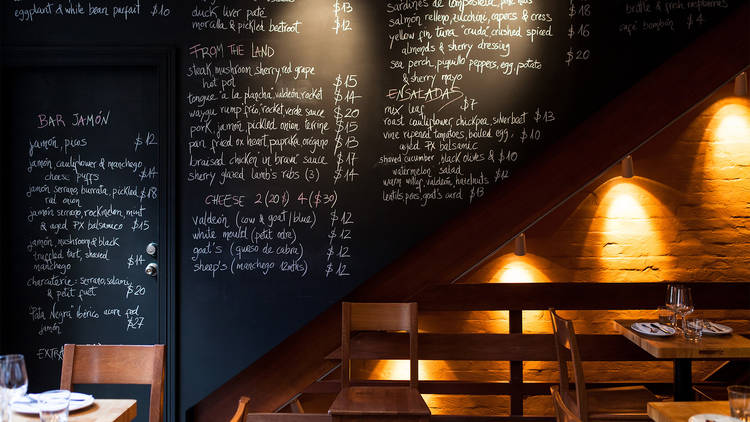 eggplant & white bean parfait $10
BAR JAMÓN
jamón, picos $12
jamón, cauliflower & manchego
cheese puffs $14
jamón serrano, burrata, pickled
red onion $18
jamón serrano, rockmelon, mint
& aged PX balsamico $15
jamón, mushroom & black
truffled tart, shaved
manchego $14
charcuterie: serrano, salami
& petit fuet $20
Pata Negra ibérico acorn fed
jamón $27
EXTRA
duck liver paté $13
morcilla & pickled beetroot $12
FROM THE LAND
steak, mushroom, sherry, red grape
hot pot $15
tongue 'a la plancha', valdeón, rocket $14
wagyu rump frío, rocket, verde sauce $20
pork, jamón, pickled onion terrine $15
pan fried ox heart, paprika, oregano $13
braised chicken in 'brava' sauce $17
sherry glazed lamb's ribs (3) $14
CHEESE 2 (20$) 4 ($30)
valdeón (cow & goat / blue) $12
white mould (petit odre) $12
goat's (queso de cabra) $12
sheep's (manchego 12mths) $12
sardines de
salmon relleno, zucchini, capers & cress $18
yellow fin tuna "cruda", crushed, spiced
almonds & sherry dressing $16
sea perch, piquillo peppers, egg, potato
& sherry mayo $20
ENSALADAS
mix leaf $7
roast cauliflower, chickpea, silverbeet $13
vine ripened tomatoes, boiled egg,
aged PX balsamic $10
shaved cucumber, black olives &
watermelon salad $10
warm witlof, valdeón, hazelnuts $12
lentils, peas, goat's curd $13
brittle & fresh raspberries
café bombón $4